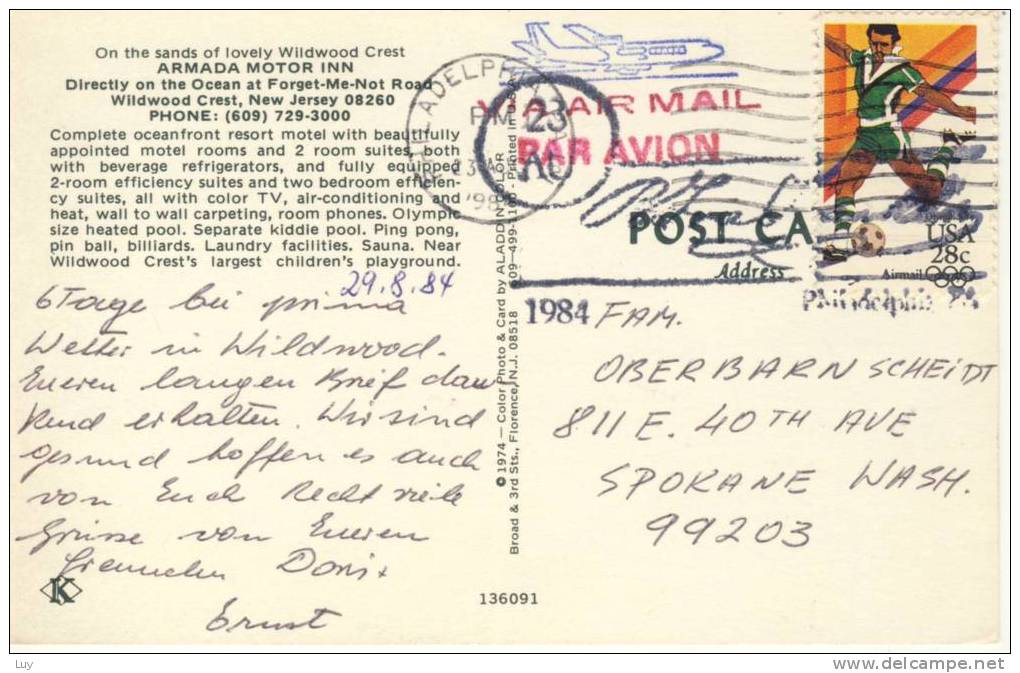 On the sands of lovely Wildwood Crest
ARMADA MOTOR INN
Directly on the Ocean at Forget-Me-Not Road
Wildwood Crest, New Jersey 08260
PHONE: (609) 729-3000
Complete oceanfront resort motel with beautifully
appointed motel rooms and 2 room suites, both
with beverage refrigerators, and fully equipped
2-room efficiency suites and two bedroom efficien-
cy suites, all with color TV, air-conditioning and
heat, wall to wall carpeting, room phones. Olympic
size heated pool. Separate kiddie pool. Ping pong,
pin ball, billiards. Laundry facilities. Sauna. Near
Wildwood Crest's largest children's playground.
29.8.84
6 Tage bei prima
Wetter in Wildwood.
Eueren langen Brief dan
kend erhalten. Wir sind
gesund hoffen es auch
von Euch Recht viele
Grüsse von Eueren
Doris +
Ernst
K
©1974 — Color Photo & Card by ALADDIN COLOR
Broad & 3rd Sts., Florence, N.J. 08518 609-499-1100 - Printed in U.S.A.
136091
PHILADELPHIA
PM
23 AU
VIA AIR MAIL
PAR AVION
23
AU
1984
POST CA
Address
USA
28c
Airmail
Philadelphia
FAM.
OBERBARNSCHEIDT
811 E. 40TH AVE
SPOKANE WASH.
99203
Luy
www.delcampe.net